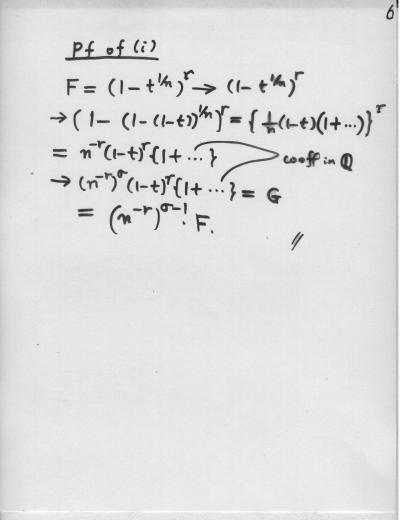 6
Pf of (i)
F = (1 - t^{1/n})^r → (1 - t^{1/n})^r
→ (1 - (1 - (1-t))^{1/n})^r = { 1/n (1-t)(1+...)}^r
= n^{-r} (1-t)^r {1+ ... } coeff in Q
→ (n^{-r})^σ (1-t)^r {1+ ... } = G
= (n^{-r})^{σ-1} F.
//